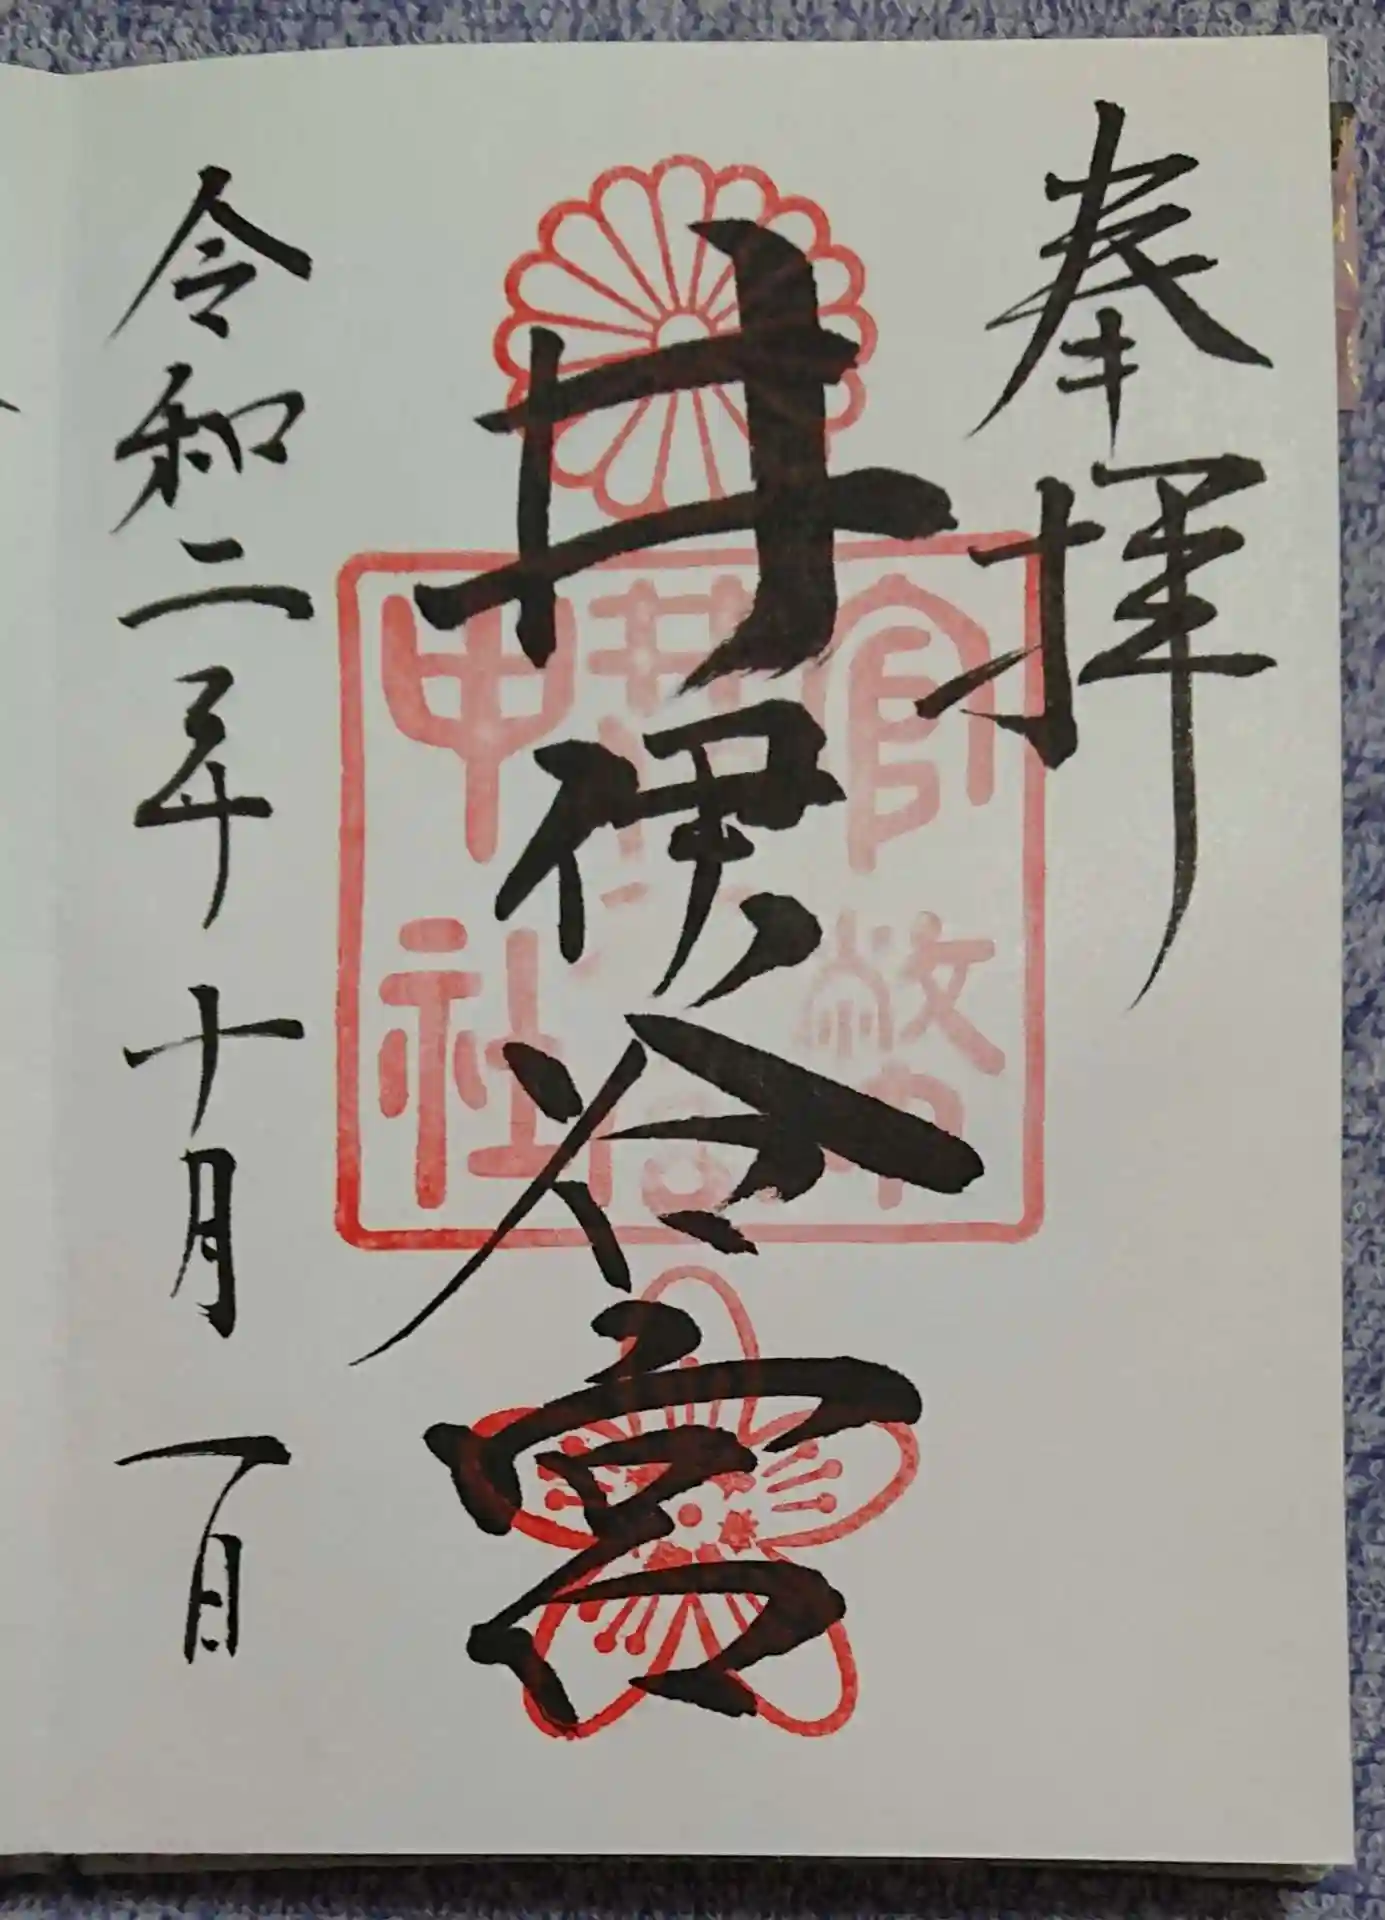 奉拝
井伊谷宮
官幣中社
令和二年十月一日